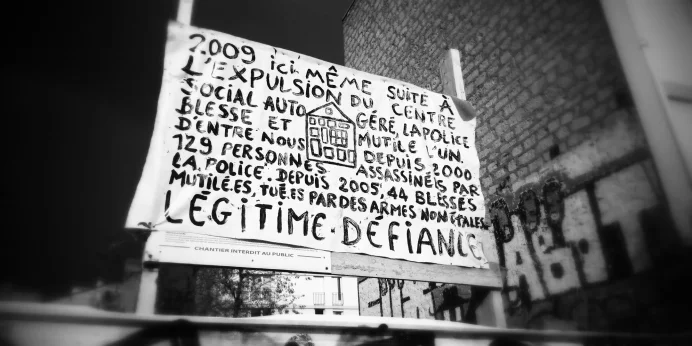 2009 ici MÊME SUITE À
L'EXPULSION DU CENTRE
SOCIAL AUTO GÉRÉ, LA POLICE
BLESSE ET MUTILE L'UN
D'ENTRE NOUS DEPUIS 2000
129 PERSONNES ASSASSINÉES PAR
LA POLICE. DEPUIS 2005, 44 BLESSÉS
MUTILÉ.ES, TUÉ.ES PAR DES ARMES NON LÉTALES
LÉGITIME · DÉFIANCE
CHANTIER INTERDIT AU PUBLIC